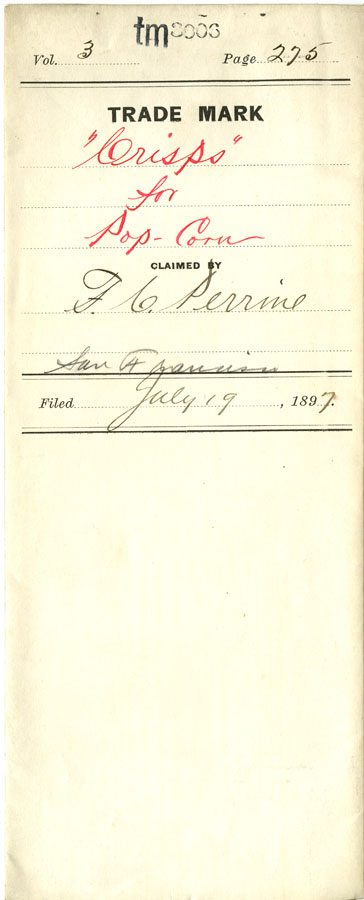 tm 3006
Vol. 3 Page 275
TRADE MARK
"Crisps"
for
Pop-Corn
CLAIMED BY
F. C. Perrine
San Francisco
Filed July 19, 1897.